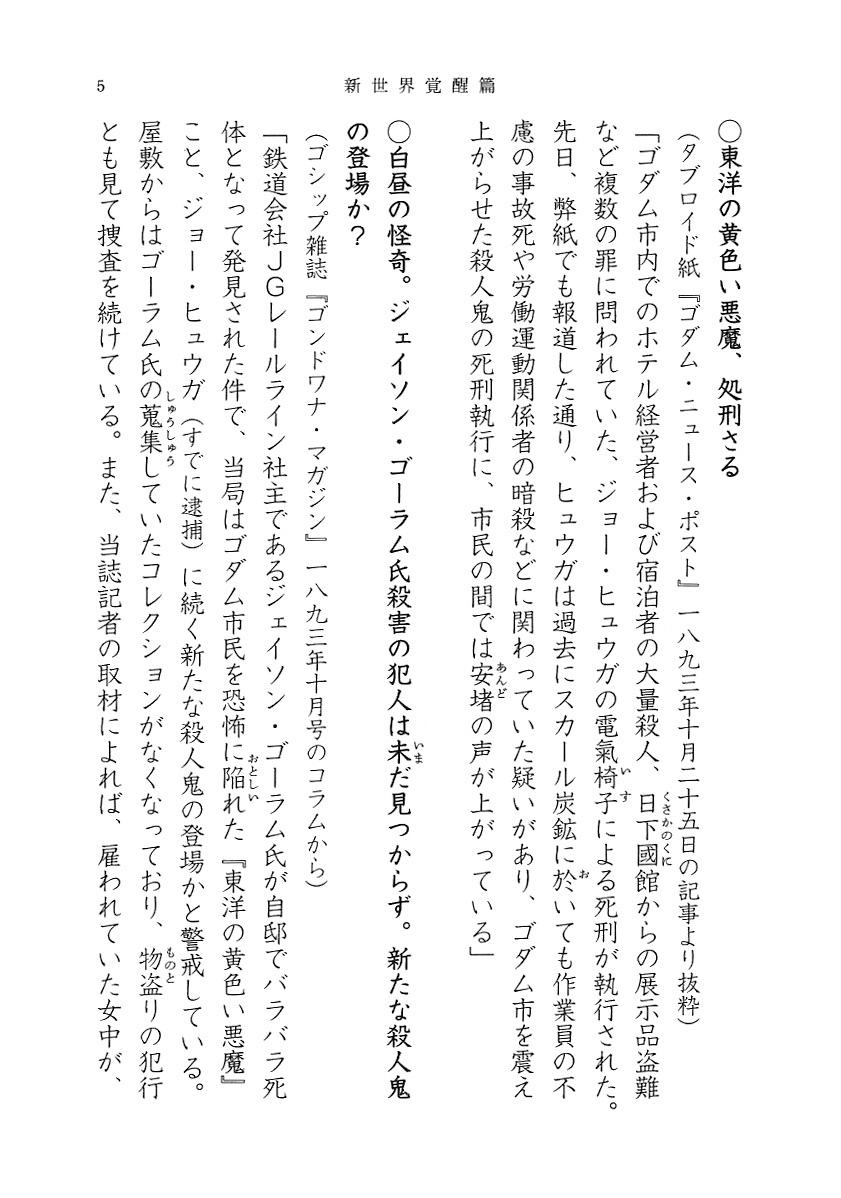 新世界覚醒篇
5
〇東洋の黄色い悪魔、処刑さる
（タブロイド紙『ゴダム・ニュース・ポスト』一八九三年十月二十五日の記事より抜粋）
「ゴダム市内でのホテル経営者および宿泊者の大量殺人、日下國館からの展示品盗難
など複数の罪に問われていた、ジョー・ヒュウガの電氣椅子による死刑が執行された。
先日、弊紙でも報道した通り、ヒュウガは過去にスカール炭鉱に於いても作業員の不
慮の事故死や労働運動関係者の暗殺などに関わっていた疑いがあり、ゴダム市を震え
上がらせた殺人鬼の死刑執行に、市民の間では安堵の声が上がっている」
〇白昼の怪奇。ジェイソン・ゴーラム氏殺害の犯人は未だ見つからず。新たな殺人鬼
の登場か？
（ゴシップ雑誌『ゴンドワナ・マガジン』一八九三年十月号のコラムから）
「鉄道会社ＪＧレールライン社主であるジェイソン・ゴーラム氏が自邸でバラバラ死
体となって発見された件で、当局はゴダム市民を恐怖に陥れた『東洋の黄色い悪魔』
こと、ジョー・ヒュウガ（すでに逮捕）に続く新たな殺人鬼の登場かと警戒している。
屋敷からはゴーラム氏の蒐集していたコレクションがなくなっており、物盗りの犯行
とも見て捜査を続けている。また、当誌記者の取材によれば、雇われていた女中が、